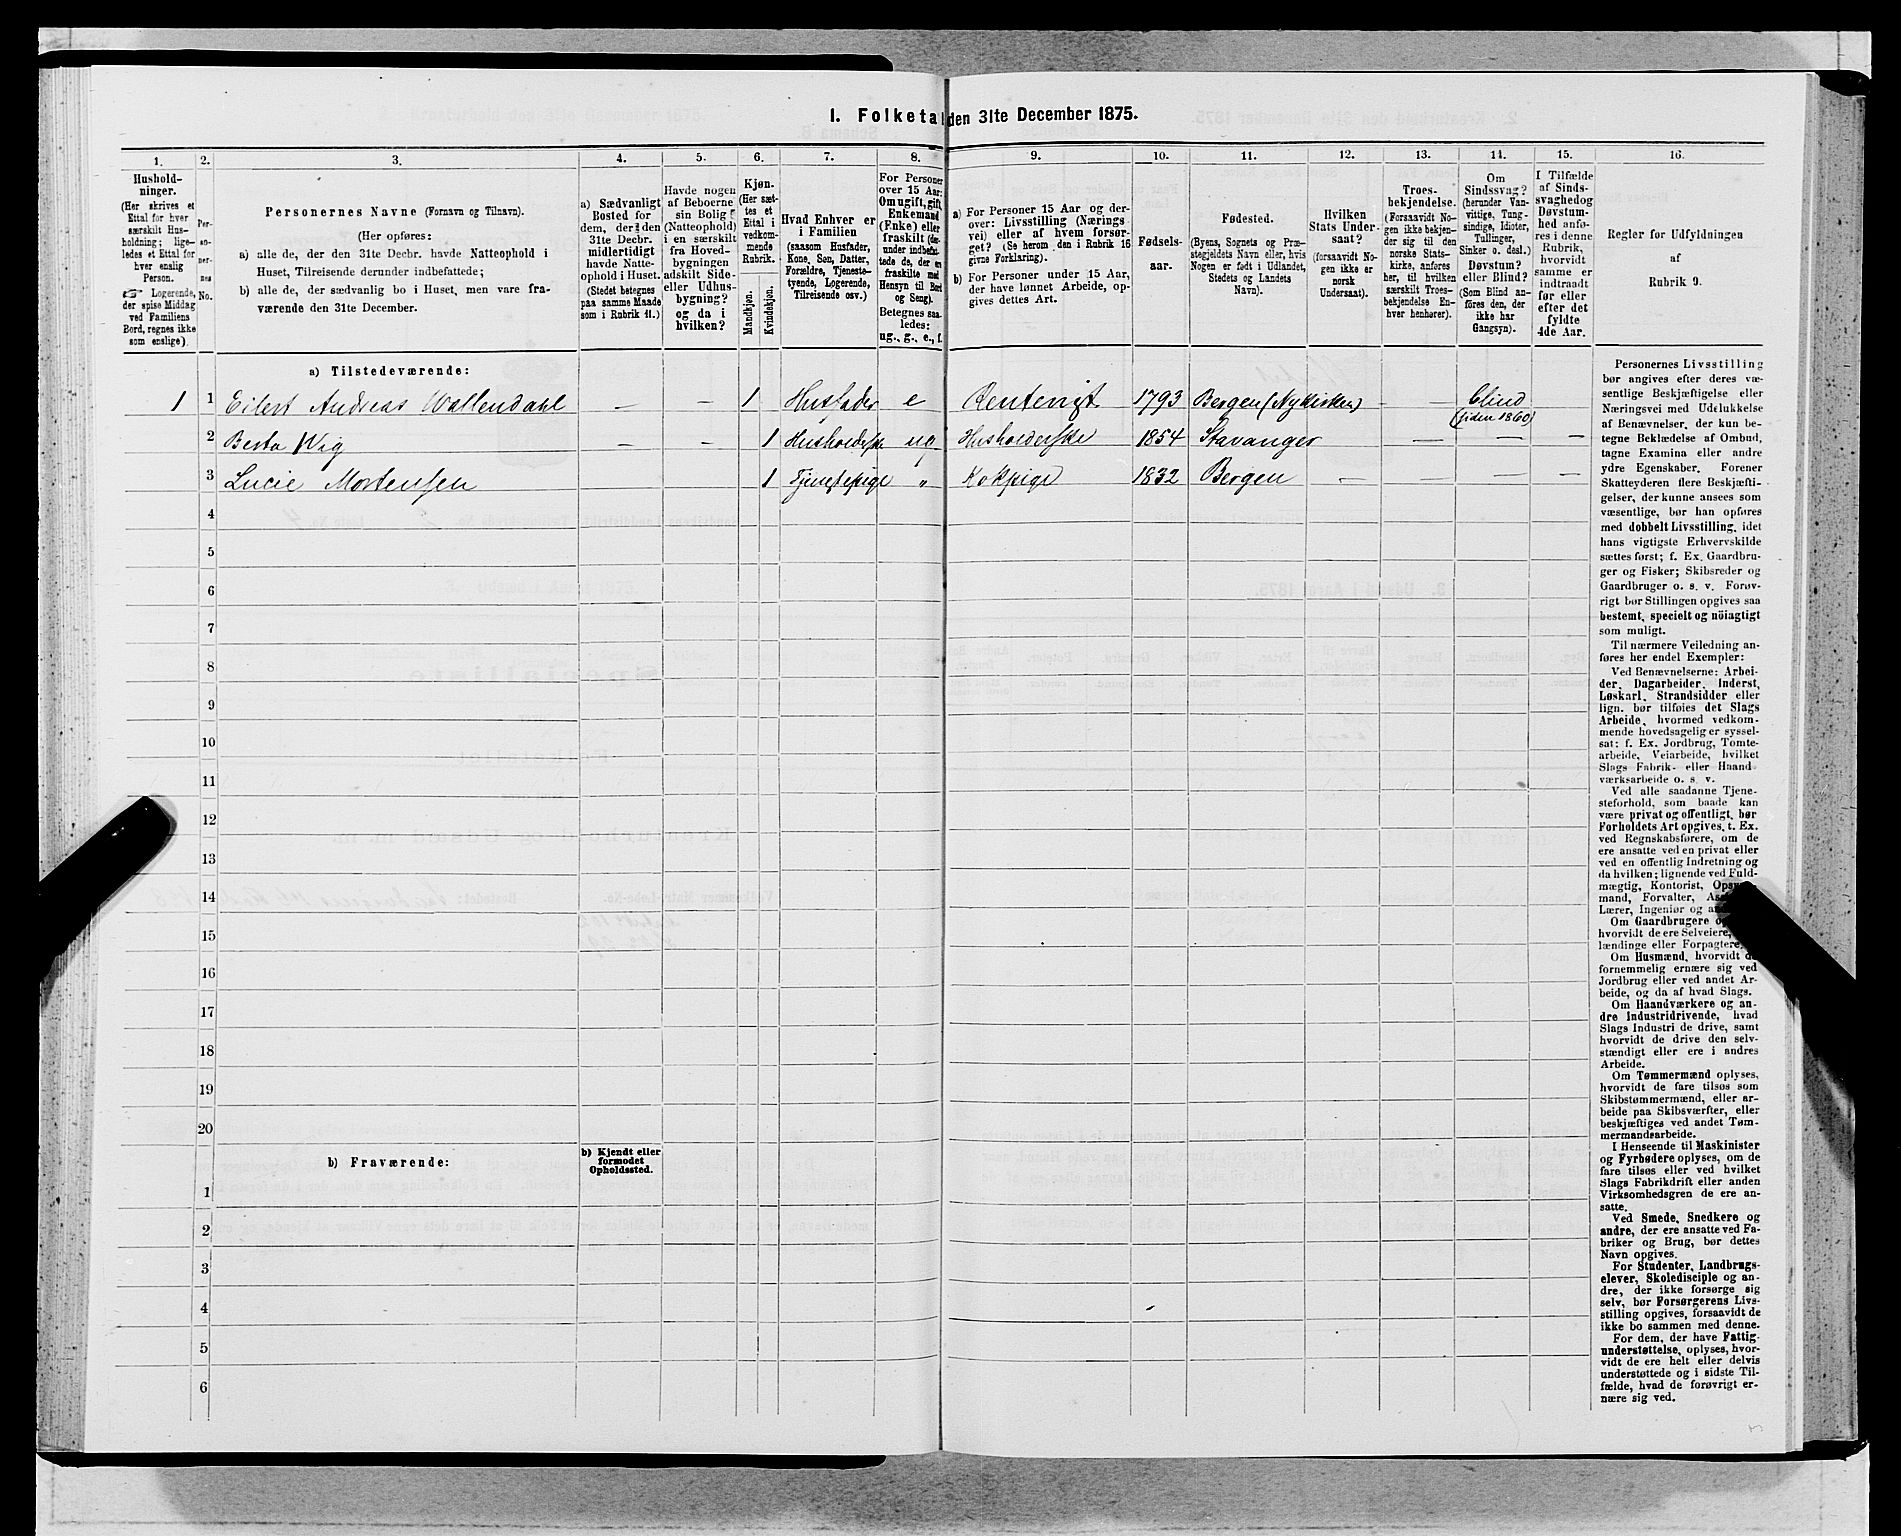 I. Folketal den 31te December 1875.
1. 2. 3. 4. 5. 6. 7. 8. 9. 10. 11. 12. 13. 14. 15. 16.
Hushold-
ninger.
(Her skrives et
Ettal for hver
særskilt Hus-
holdning; lige-
ledes et Ettal for
hver enslig
Person.
☞ Logerende,
der spise Middag
ved Familiens
Bord, regnes ikke
som enslige).
Per-
so-
ner-
nes
No.
Personernes Navne (Fornavn og Tilnavn).
(Her opføres:
a) alle de, der den 31te Decbr. havde Natteophold i
Huset, Tilreisende derunder indbefattede;
b) alle de, der sædvanlig bo i Huset, men vare fra-
værende den 31te December.
a) Sædvanligt
Bosted for
dem, der den
31te Decbr.
midlertidigt
havde Natte-
ophold i Huset.
(Stedet betegnes
paa samme Maade
som i Rubrik 11.)
Havde nogen
af Beboerne
sin Bolig
(Natteophold)
i en særskilt
fra Hoved-
bygningen
adskilt Side-
eller Udhus-
bygning?
og da i
hvilken?
Kjøn.
(Her sæt-
tes et
Ettal i
vedkom-
mende
Rubrik.
Mandkjøn.
Kvindekjøn.
Hvad Enhver er
i Familien
(saasom Husfader,
Kone, Søn, Datter,
Forældre, Tjeneste-
tyende, Logerende,
Tilreisende osv.)
For Personer
over 15 Aar:
Om ugift, gift,
Enkemand
(Enke) eller
fraskilt (der-
under indbefat-
tede de, der er
fraskilte med
Hensyn til Bord
og Seng).
Betegnes saa-
ledes:
ug., g., e., f.
a) For Personer 15 Aar og der-
over: Livsstilling (Nærings-
vei) eller af hvem forsør-
get? (Se herom den i Rubrik 16
givne Forklaring).
b) For Personer under 15 Aar,
der have lønnet Arbeide, op-
gives dettes Art.
Fødsels-
aar.
Fødested.
(Byens, Sognets og Præ-
stegjeldets Navn eller, hvis
Nogen er født i Udlandet,
Stedets og Landets
Navn).
Hvilken
Stats Under-
saat?
(forsaavidt No-
gen ikke er
norsk
Undersaat).
Troes-
bekjendelse.
(Forsaavidt No-
gen ikke bekjen-
der sig til den
norske Stats-
kirke, anføres
her, til hvilken
særskilt Troes-
bekjendelse En-
hver henhører).
Om
Sindssvag?
(herunder Van-
vittige, Tung-
sindige, Idioter,
Tullinger,
Sinker o. desl.)
Døvstum?
eller Blind?
(Som Blind an-
føres den, der
ikke har
Gangsyn).
I Tilfælde
af Sinds-
svaghed og
Døvstum-
hed anfø-
res i denne
Rubrik,
hvorvidt
samme er
indtraadt
før eller
efter det
fyldte
4de Aar.
Regler for Udfyldningen
af
Rubrik 9.
a) Tilstedeværende:
1 1 Eilert Andreas Wallendahl — — 1 Husfader e Rentenist 1793 Bergen (Nykirken) — — blind
(siden 1860)
2 Berta Wig — — 1 Husholderske ug Husholderske 1854 Stavanger — — —
3 Lucie Mortensen 1 Tjenestepige " Kokpige 1832 Bergen — — — —
4
5
6
7
8
9
10
11
12
13
14
15
16
17
18
19
20
b) Fraværende:
b) Kjendt eller
formodet
Opholdssted.
1
2
3
4
5
6
Personernes Livsstilling
bør angives efter deres væ-
sentlige Beskjæftigelse eller
Næringsvei med Udelukkelse
af Benævnelser, der kun be-
tegne Beklædelse af Ombud,
tagne Examina eller andre
ydre Egenskaber. Forener
Skatteyderen flere Beskjæfti-
gelser, der kunne ansees som
væsentlige, bør han opføres
med dobbelt Livsstilling, idet
hans vigtigste Erhvervskilde
sættes først; f. Ex. Gaardbru-
ger og Fisker; Skibsreder og
Gaardbruger o. s. v. Forøv-
rigt bør Stillingen opgives saa
bestemt, specielt og nöiagtigt
som muligt.
Til nærmere Veiledning an-
føres her endel Exempler:
Ved Benævnelserne: Arbei-
der, Dagarbeider, Inderst,
Løskarl, Strandsidder eller
lign. bør tilføies det Slags
Arbeide, hvormed vedkom-
mende hovedsagelig er syssel-
sat: f. Ex. Jordbrug, Tomte-
arbeide, Veiarbeide, hvilket
Slags Fabrik- eller Haand-
værksarbeide o. s. v.
Ved alle saadanne Tjene-
steforhold, som baade kan
være privat og offentligt, bør
Forholdets Art opgives, t. Ex.
ved Regnskabsførere, om de
ere ansatte ved en privat eller
ved en offentlig Indretning og
da hvilken; lignende ved Fuld-
mægtig, Kontorist,
mand, Forvalter,
Lærer, Ingeniør og
Om Gaardbrugere
hvorvidt de ere Selveiere,
lændinge eller Forpagtere,
Om Husmænd, hvorvidt de
fornemmelig ernære sig ved
Jordbrug eller ved andet Ar-
beide, og da af hvad Slags.
Om Haandværkere og an-
dre Industridrivende, hvad
Slags Industri de drive, samt
hvorvidt de drive den selv-
stændigt eller ere i andres
Arbeide.
Om Tømmermænd oplyses,
hvorvidt de fare tilsøs som
Skibstømmermænd, eller ar-
beide paa Skibsværfter, eller
beskjæftiges ved andet Tøm-
mermandsarbeide.
I Henseende til Maskinister
og Fyrbødere oplyses, om de
fare tilsøs eller ved hvilket
Slags Fabrikdrift eller anden
Virksomhedsgren de ere an-
satte.
Ved Smede, Snedkere og
andre, der ere ansatte ved Fa-
briker og Brug, bør dettes
Navn opgives.
For Studenter, Landbrugs-
elever, Skoledisciple og an-
dre, der ikke forsørge sig
selv, bør Forsørgerens Livs-
stilling opgives, forsaavidt de
ikke bo sammen med denne.
For dem, der have Fattig-
understøttelse, oplyses, hvor-
vidt de ere helt eller delvis
understøttede og i sidste Til-
fælde, hvad de forøvrigt er-
nære sig ved.